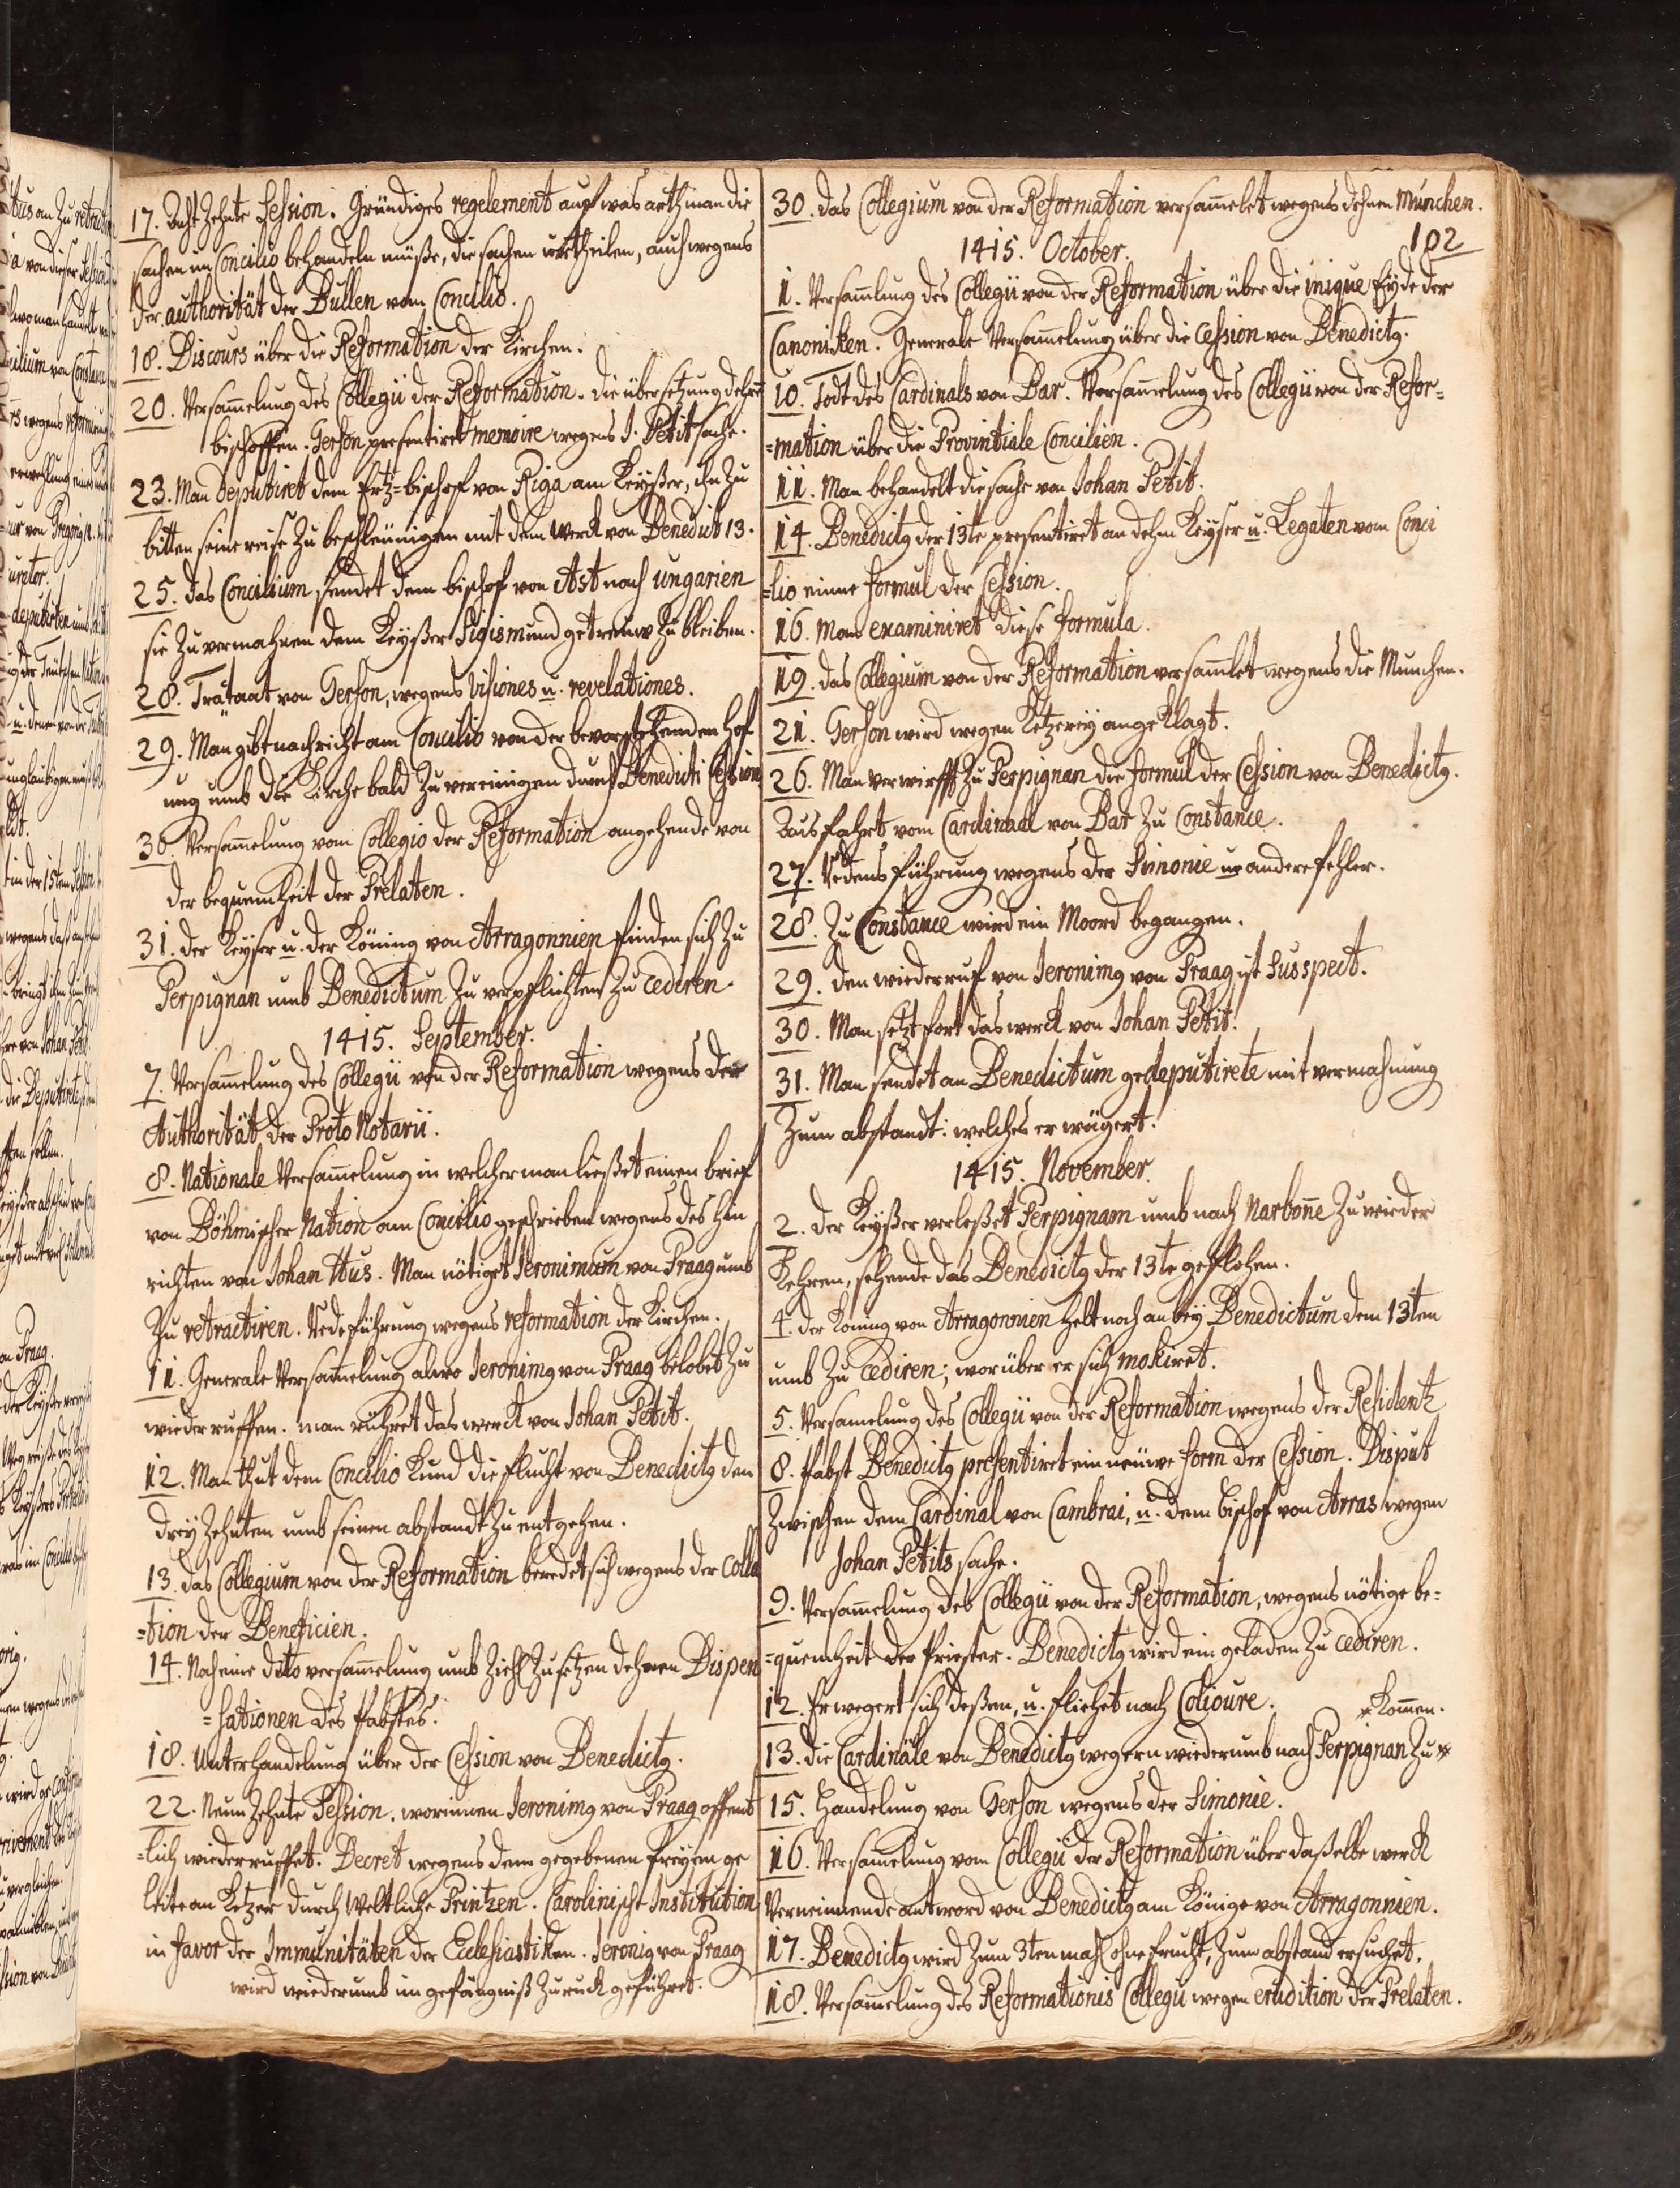 17. Acht Zehnte Session. Gründiges regelement auf was arth man die
sachen im Concilio behandeln müße, die sachen urtheilen, auch wegens
der authorität der Bullen vom Concilio.
18. Discours über die Reformation der Kirchen.
20. Versam̅elung des Collegii der Reformation. die übersetzung dehre̅
bischoffen. Gerson presentiret memoire wegens J. Petit sache.
23. Man deputiret dem Ertz=bischof von Riga am Keyßer, ihn zu
bitten seine reise zu beschleunigen mit dem werck von Benedict 13.
25. das Concilium sendet dem bischof von Ast nach ungarien
sie zu vermahnen dem Keyßer Sigismund getreuw zu bleiben.
28. Tratäat von Gerson, wegens Visiones u. revelationes.
29. Man gibt nachricht am Concilio von der bevorstehenden Hof
nug umb die Kirche bald zu vereinigen durch Benedicti Cession
30. Versam̅elung vom Collegio der Reformation angehende von
der bequemheit der Prelaten.
31. der Keyser u. der Köning von Arragonnien finden sich zu
Perpignan umb Benedictum zu verpflichten zu cediren.
1415. September.
7. Versam̅elung des Collegii von der Reformation wegens der
Authorität der Proto Notarii.
8. Nationale Versam̅elung in welcher man ließet einen brief
von Böhmischer Nation am Concilio geschrieben wegens des hin
richten von Johan Hus. Man nötiget Jeronimum von Praag umb
zu retractiren. Redeführung wegens reformation der Kirchen.
11. Generale Versam̅elung alwo Jeronimg von Praag belobet zu
wiederruffen. man rühret das werck von Johan Petit.
12. Man thut dem Concilio Kund die flucht von Benedictg den
drey Zehnten umb seinen abstandt zu entgehen.
13. das Collegium von der Reformation beredet sich wegens der Colla
=tion der Beneficien.
14. Noch eine dito versam̅elung umb Ziehl zu setzen dehnen Dispen
=sationen des Pabstes.
18. Unterhandelung über der Cession von Benedictg.
22. Neun Zehnte Session. worinnen Jeronimg von Praag offent
=lich wiederruffet. Decret wegens dem gegebenen freyem ge
leite an Ketzer durch weltliche Printzen. Carolinische Institution
in favor der Immunitäten der Ecclesiastiken. Jeronig von Praag
wird wiederumb im gefängniß zuruck geführet.
30. das Collegium von der Reformation versam̅elet wegens dehnen München.
102
1415. October.
1. Versam̅lung des Collegii von der Reformation über die inique Eyde der
Canoniken. Generale Versam̅elung über die Cession von Benedictg.
10. Todt des Cardinals von Bar. Versam̅elung des Collegii von der Refor=
=mation über die Provintiale Concilien.
11. Man behandelt die sache von Johan Petit.
14. Benedictg der 13te presentiret an dehm Keyser u. Legaten vom Conci
=lio einne formul der Cession.
16. Man examiniret diese formula.
19. das Collegium von der Reformation versam̅let wegens die Munchen.
21. Gerson wird wegen Ketzerey angeklagt.
26. Man verwirfft zu Perpignan die formul der Cession von Benedictg.
Ausfahrt vom Cardinaal von Bar zu Constance.
27. Redensführung wegens der Simonie u. andere fehler.
28. Zu Constance wird ein Moord begangen.
29. den wiederruf von Jeronimg von Praag, ist susspect.
30. Man setzt fort das werck von Johan Petit.
31. Man sendet an Benedictum gedeputirete mit vermahnung
Zum abstandt: welches er wägert.
1415. November.
2. der Keyßer verlaßet Perpignam umb nach Narbon̅e zu wieder
Kehren, sehende das Benedictg der 13te geflohen.
4. der Koning von Arragonnien helt noch an bey Benedictum dem 13ten
umb zu cediren; worüber er sich mokiret.
5. Versamelung des Collegii von der Reformation wegens der Residentz
8. Pabst Benedictg presentiret ein neuwe form der Cession. Disput
Zwischen dem Cardinal von Cambrai, u. dem bischof von Arras wegen
Johan Petits sache.
9. Versam̅elung des Collegii von der Reformation, wegens nötige be=
=quemheit der Priester. Benedictg wird ein geladen zu cediren.
12. Er wegert sich deßen, u. fliehet nach Colioure. * Kom̅en.
13. die Cardinäle von Benedictg wegern wiederumb nach Perpignan zu *
15. Handelung von Gerson wegens der Simonie.
16. Versam̅elung vom Collegii der Reformation über daßelbe werck
Verneinnende antword von Benedictg am Könige von Arragonnien.
17. Benedictg wird zum 3ten mahl ohne frucht, zum abstand ersuchet.
18. Versam̅elung des Reformationis Collegii wegen erudition der Prelaten.